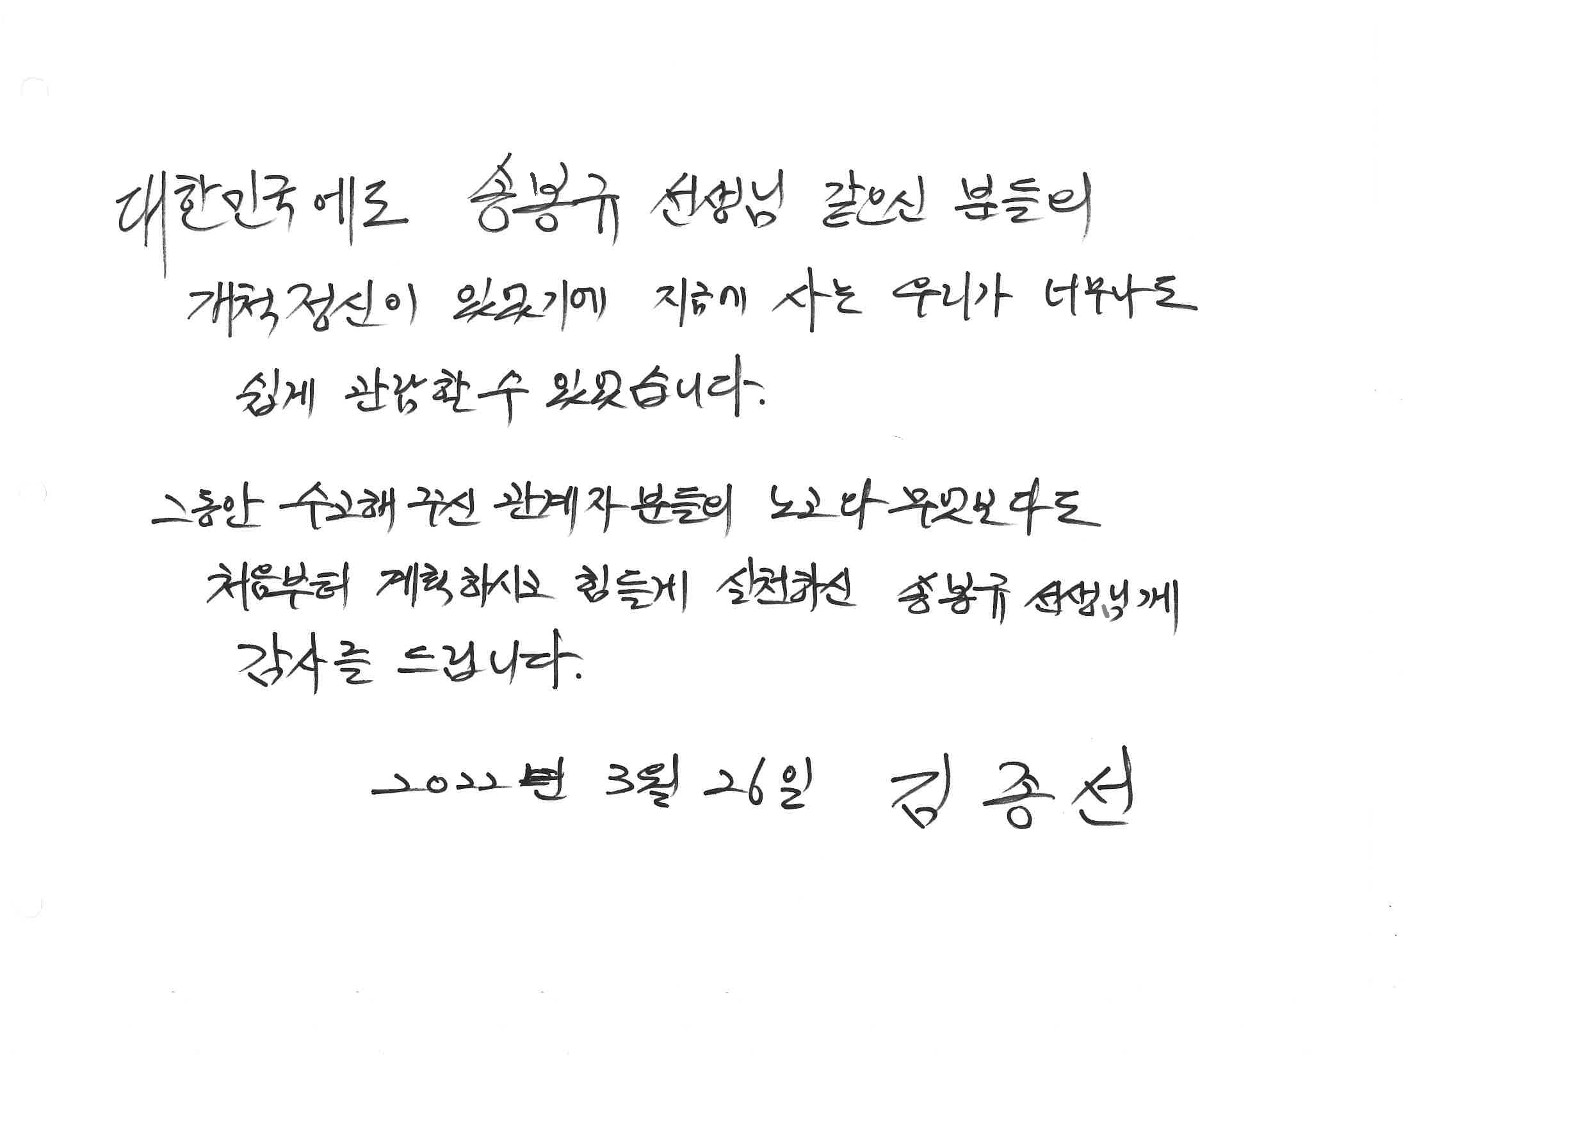 대한민국에도 송봉규 선생님 같으신 분들의
개척정신이 있었기에 지금에 사는 우리가 너무나도
쉽게 관람할 수 있었습니다.
그동안 수고해 주신 관계자분들의 노고와 무엇보다도
처음부터 계획하시고 힘들게 실천하신 송봉규 선생님께
감사를 드립니다.
2022년 3월 26일 김종선